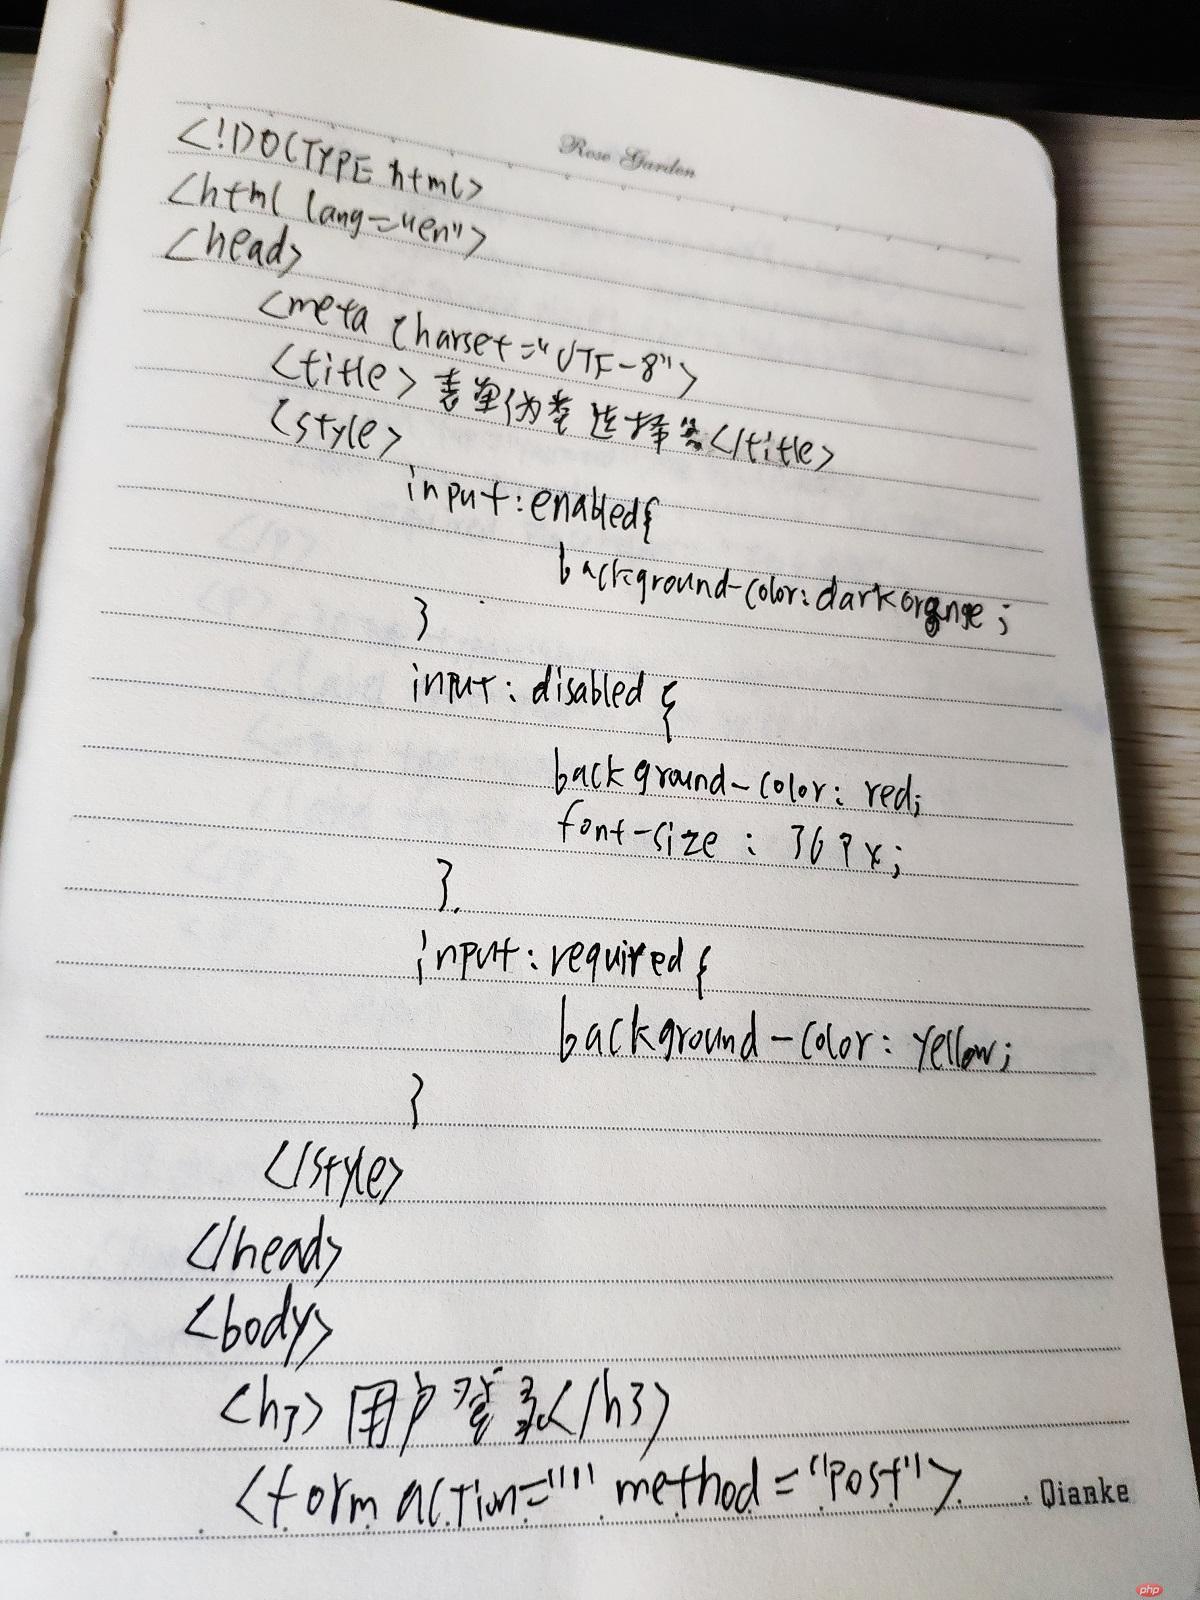 Rose Garden
<!DOCTYPE html>
<html lang="en">
<head>
<meta charset="UTF-8">
<title>表单伪类选择器</title>
<style>
input:enabled{
background-color:darkorange;
}
input:disabled{
background-color:red;
font-size:36px;
}
input:required{
background-color:yellow;
}
</style>
</head>
<body>
<h3>用户登录</h3>
<form action="" method="post">
Qianke
php